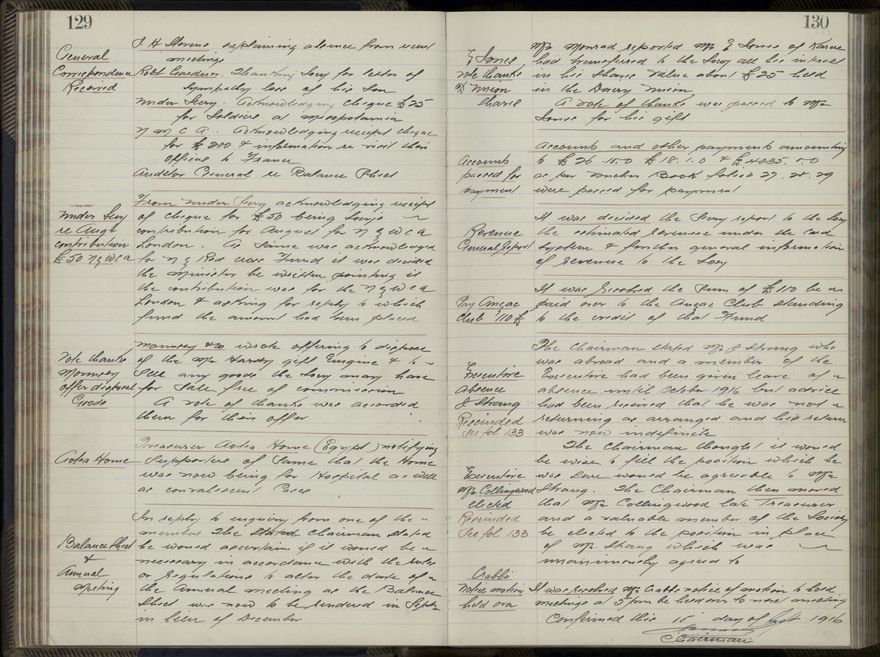 129
General
Correspondence
Received
J H Stevens explaining absence from
meeting
Robt Gardner. Thanking Socy for letter of
sympathy loss of his Son
Under Secy. Acknowledging cheque £25
for Soldiers at Mesopotamia
Y M C A. Acknowledging receipt cheque
for £200 & information re visit their
Officer to France
Auditor General re Balance Sheet
Under Secy
re Augt
contribution
£50 N Z W C A
From Under Secy acknowledging receipt
of cheque for £50 being Socy's
contribution for August for N Z W C A
London. As same was acknowledged
for N Z Red Cross Fund it was decided
the Minister be written pointing it
the contribution was for the N Z W C A
London & asking for reply to which
fund the amount had been placed
Vote thanks
offer disposal
Goods
wrote offering to dispose
of the Mr Harvey gift Engine & to
Sell any goods the Socy may have
for Sale free of commission
A vote of thanks was accorded
them for their offer
Aotea Home
Treasurer Aotea Home (Egypt) notifying
Supporters of Same that the Home
was now being for Hospital as well
as convalescent Cases
Balance Sheet
&
Annual
Meeting
In reply to inquiry from one of the
members The Chairman stated
he would ascertain if it would be
necessary in accordance with the rules
or regulations to alter the date of
the Annual meeting as the Balance
Sheet was now to be rendered in Septr
in lieu of December
130
J Jones
vote thanks
D Union
Shares
Mr Monrad reported Mr J Jones of Karere
had transferred to the Socy all his interest
in his Shares value about £25 held
in the Dairy Union
A vote of thanks was passed to Mr
Jones for his gift
Accounts
passed for
payment
Accounts and other payments amounting
to £26.15.0 £18.1.0 & £4035.5.0
as per Book folios 27. 28. 29
were passed for payment
Revenue
General Report
It was decided the Secy report to the Socy
the estimated revenue under the card
System & further general information
of revenue to the Socy
Pay Anzac
Club £110
It was resolved the Sum of £110 be
paid over to the Anzac Club standing
to the credit of that Fund
Executive
absence
J Strang
Rescinded
See fol 133
The Chairman stated Mr J Strang who
was abroad and a member of the
Executive had been given leave of
absence until October 1916 but advice
had been received that he was not
returning as arranged and his return
was now indefinite
The Chairman thought it would
be wise to fill the position which he
Executive
Mr Collingwood
elected
Rescinded
See fol 133
was sure would be agreeable to Mr
Strang. The Chairman then moved
that Mr Collingwood late Treasurer
and a valuable member of the Society
be elected to the position in place
of Mr Strang which was
unanimously agreed to
Crabbs
Notice motion
held over
It was resolved Mr Crabbs notice of motion to hold
meetings at 3 pm be held over to next meeting
Confirmed this 11 day of Sept 1916
Chairman